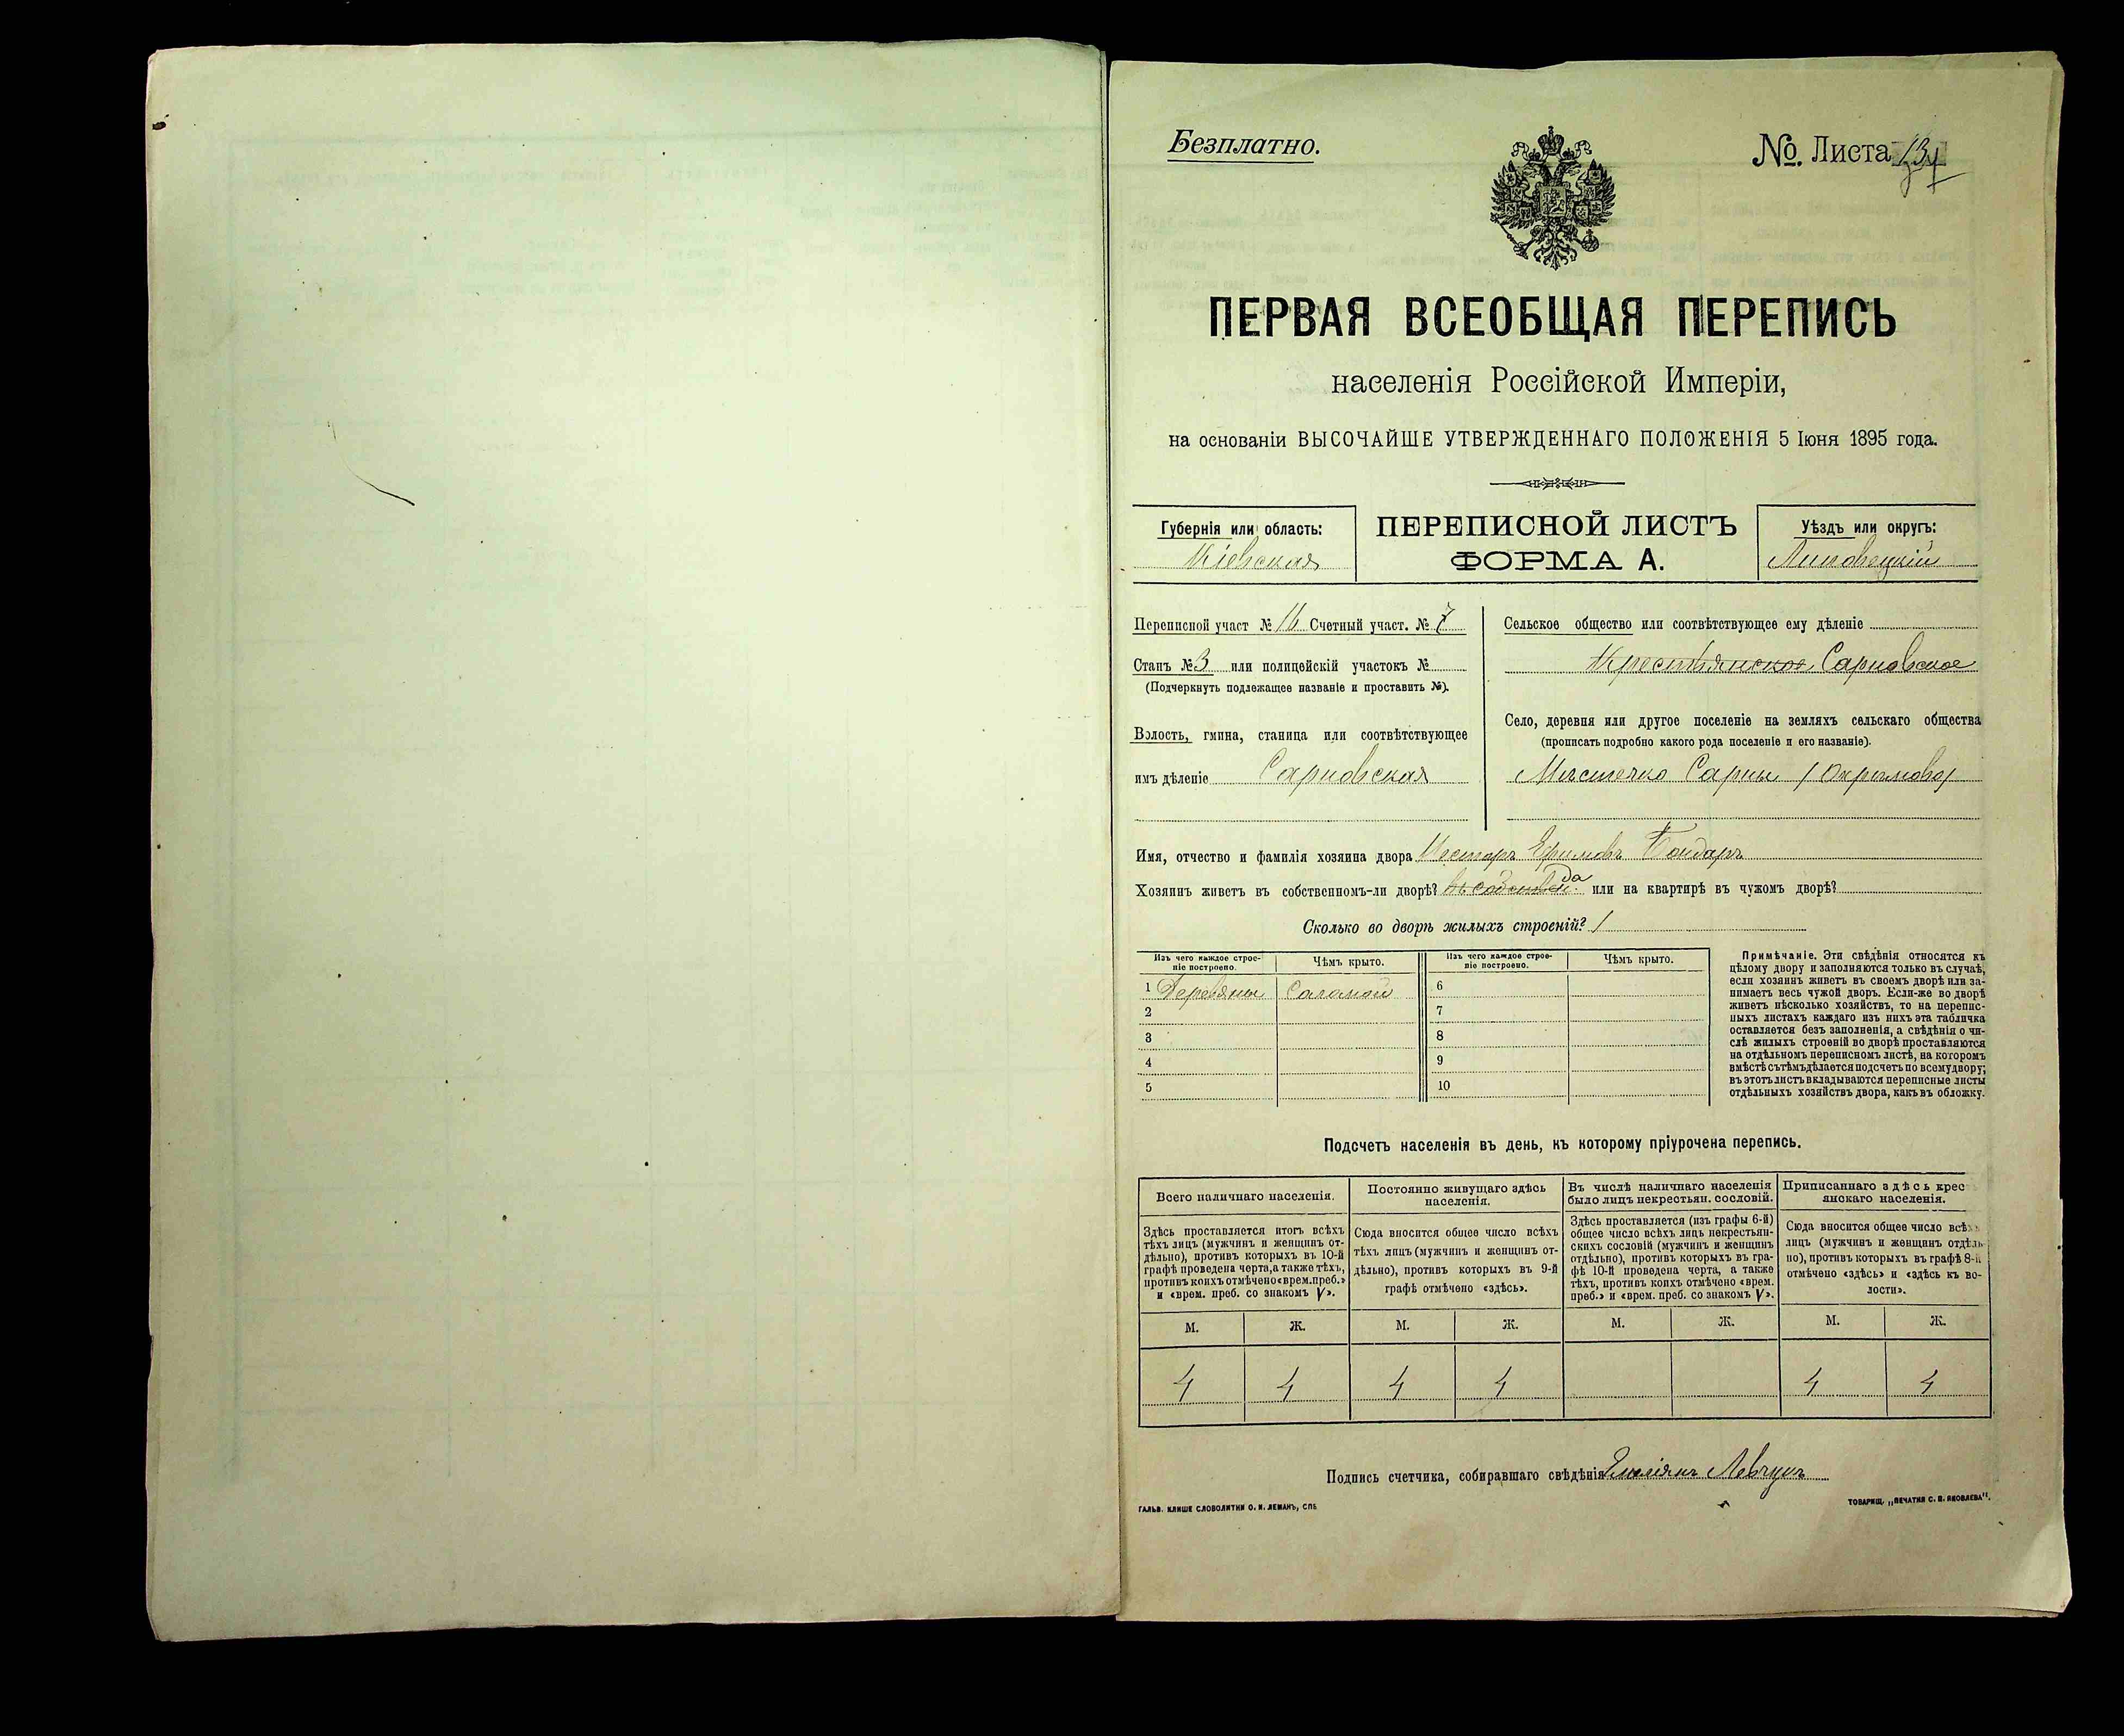 Безплатно.
№. Листа
ПЕРВАЯ ВСЕОБЩАЯ ПЕРЕПИСЬ
населенія Россійской Имперіи,
на основаніи ВЫСОЧАЙШЕ УТВЕРЖДЕННАГО ПОЛОЖЕНІЯ 5 Іюня 1895 года.
Губернія или область:
Кіевская
ПЕРЕПИСНОЙ ЛИСТЪ
ФОРМА А.
Уѣздъ или округъ:
Липовецкій
Переписной участ № 16 Счетный участ. № 7
Станъ № 3 или полицейскій участокъ №
(Подчеркнуть подлежащее названіе и проставить №).
Волость, гмина, станица или соотвѣтствующее
имъ дѣленіе Сарновская
Сельское общество или соотвѣтствующее ему дѣленіе
Крестьянское Сарновское
Село, деревня или другое поселеніе на земляхъ сельскаго общества
(прописать подробно какого рода поселеніе и его названіе).
Мѣстечко Сарны
Имя, отчество и фамилія хозяина двора Несторъ Ефимовъ Бондаръ
Хозяинъ живетъ въ собственномъ-ли дворѣ? да или на квартирѣ въ чужомъ дворѣ?
Сколько во дворѣ жилыхъ строеній? 1
Изъ чего каждое строе-
ніе построено.
Чѣмъ крыто.
Изъ чего каждое строе-
ніе построено.
Чѣмъ крыто.
1 Деревяны Саламой
2
3
4
5
6
7
8
9
10
Примѣчаніе. Эти свѣдѣнія относятся къ
цѣлому двору и заполняются только въ случаѣ,
если хозяинъ живетъ въ своемъ дворѣ или за-
нимаетъ весь чужой дворъ. Если-же во дворѣ
живетъ нѣсколько хозяйствъ, то на перепис-
ныхъ листахъ каждаго изъ нихъ эта табличка
оставляется безъ заполненія, а свѣдѣнія о чи-
слѣ жилыхъ строеній во дворѣ проставляются
на отдѣльномъ переписномъ листѣ, на которомъ
вмѣстѣ съ тѣмъ дѣлается подсчетъ по всему двору;
въ этотъ листъ вкладываются переписные листы
отдѣльныхъ хозяйствъ двора, какъ въ обложку.
Подсчетъ населенія въ день, къ которому пріурочена перепись.
Всего наличнаго населенія.
Здѣсь проставляется итогъ всѣхъ
тѣхъ лицъ (мужчинъ и женщинъ от-
дѣльно), противъ которыхъ въ 10-й
графѣ проведена черта, а также тѣхъ,
противъ коихъ отмѣчено «врем. преб.»
и «врем. преб. со знакомъ V».
Постоянно живущаго здѣсь
населенія.
Сюда вносится общее число всѣхъ
тѣхъ лицъ (мужчинъ и женщинъ от-
дѣльно), противъ которыхъ въ 9-й
графѣ отмѣчено «здѣсь».
Въ числѣ наличнаго населенія
было лицъ некрестьян. сословій.
Здѣсь проставляется (изъ графы 6-й)
общее число всѣхъ лицъ некрестьян-
скихъ сословій (мужчинъ и женщинъ
отдѣльно), противъ которыхъ въ гра-
фѣ 10-й проведена черта, а также
тѣхъ, противъ коихъ отмѣчено «врем.
преб.» и «врем. преб. со знакомъ V».
Приписаннаго здѣсь крес
янскаго населенія.
Сюда вносится общее число всѣ
лицъ (мужчинъ и женщинъ отдѣль
но), противъ которыхъ въ графѣ 8-й
отмѣчено «здѣсь» и «здѣсь къ во-
лости».
М. Ж. М. Ж. М. Ж. М. Ж.
4 4 4 4 4 4
Подпись счетчика, собиравшаго свѣдѣнія Емеліянъ Левчукъ
ГАЛЬВ. КЛИШЕ СЛОВОЛИТНИ О. И. ЛЕМАНЪ, СПБ
ТОВАРИЩ. „ПЕЧАТНЯ С. П. ЯКОВЛЕВА".